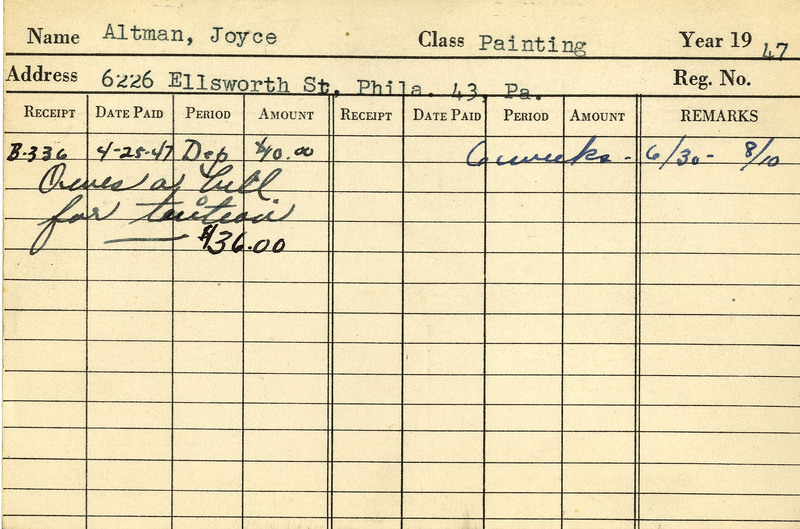 Name Altman, Joyce Class Painting Year 19 47
Address 6226 Ellsworth St. Phila. 43, Pa. Reg. No.
RECEIPT DATE PAID PERIOD AMOUNT RECEIPT DATE PAID PERIOD AMOUNT REMARKS
B-336 4-25-47 Dep $40.00 6 weeks - 6/30 - 8/10
Owes a bill
for tuition
$136.00